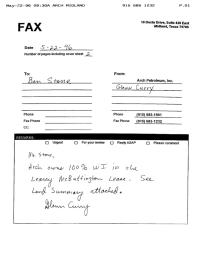 May-22-96 09:30A ARCH MIDLAND 915 685 1232 P.01
10 Desta Drive, Suite 420 East
Midland, Texas 79705
FAX
Date 5-22-96
Number of pages including cover sheet 2
To:
Ben Stone
From:
Arch Petroleum, Inc.
Glenn Curry
Phone
Fax Phone
CC:
Phone (915) 685-1961
Fax Phone (915) 685-1232
REMARKS:
Urgent For your review Reply ASAP Please comment
Mr. Stone,
Arch owns 100% WI in the
Leaney McBuffington Lease. See
Land Summary attached.
Glenn Curry